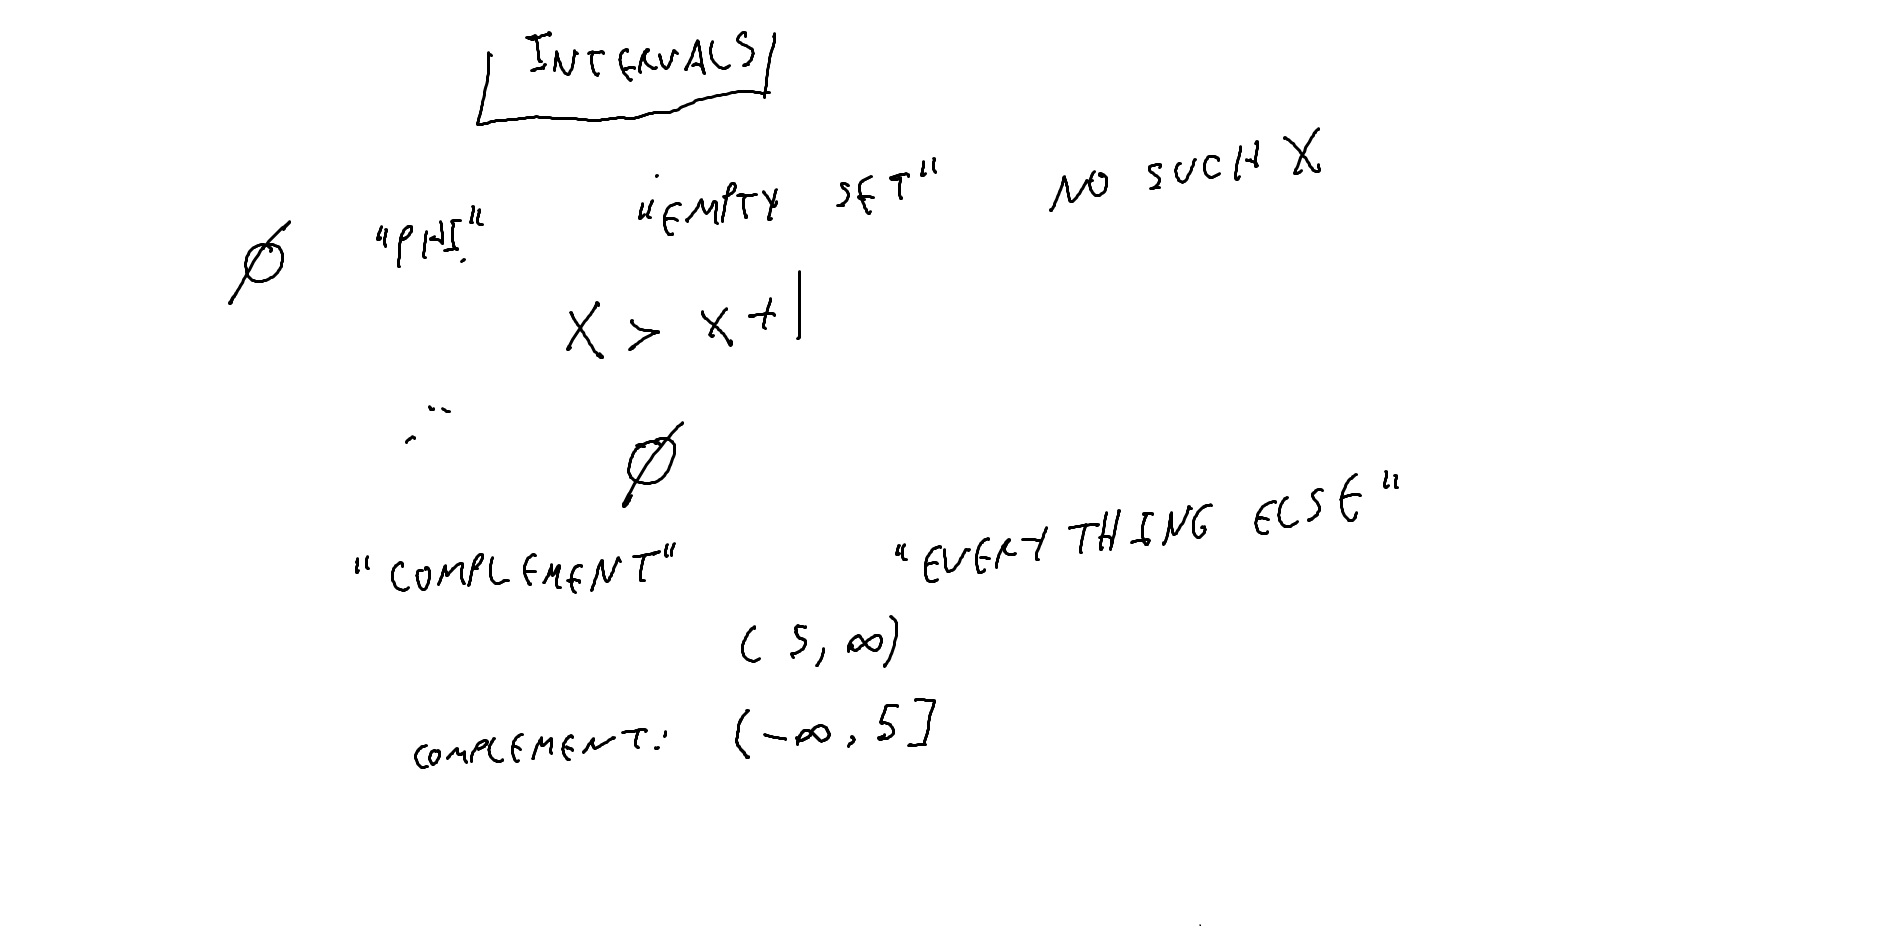 INTERVALS
∅ "PHI" "EMPTY SET" NO SUCH X
X > X + 1
∅
"COMPLEMENT" "EVERYTHING ELSE"
( 5, ∞)
COMPLEMENT: (-∞, 5]